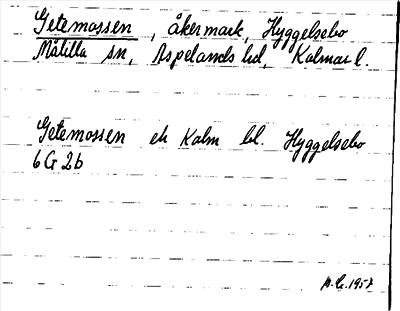 Getemossen, åkermark, Hyggelsebo
Målilla sn, Aspelands hd, Kalmar l.
Getemossen ek Kalm bl. Hyggelsebo
6G2b
1957